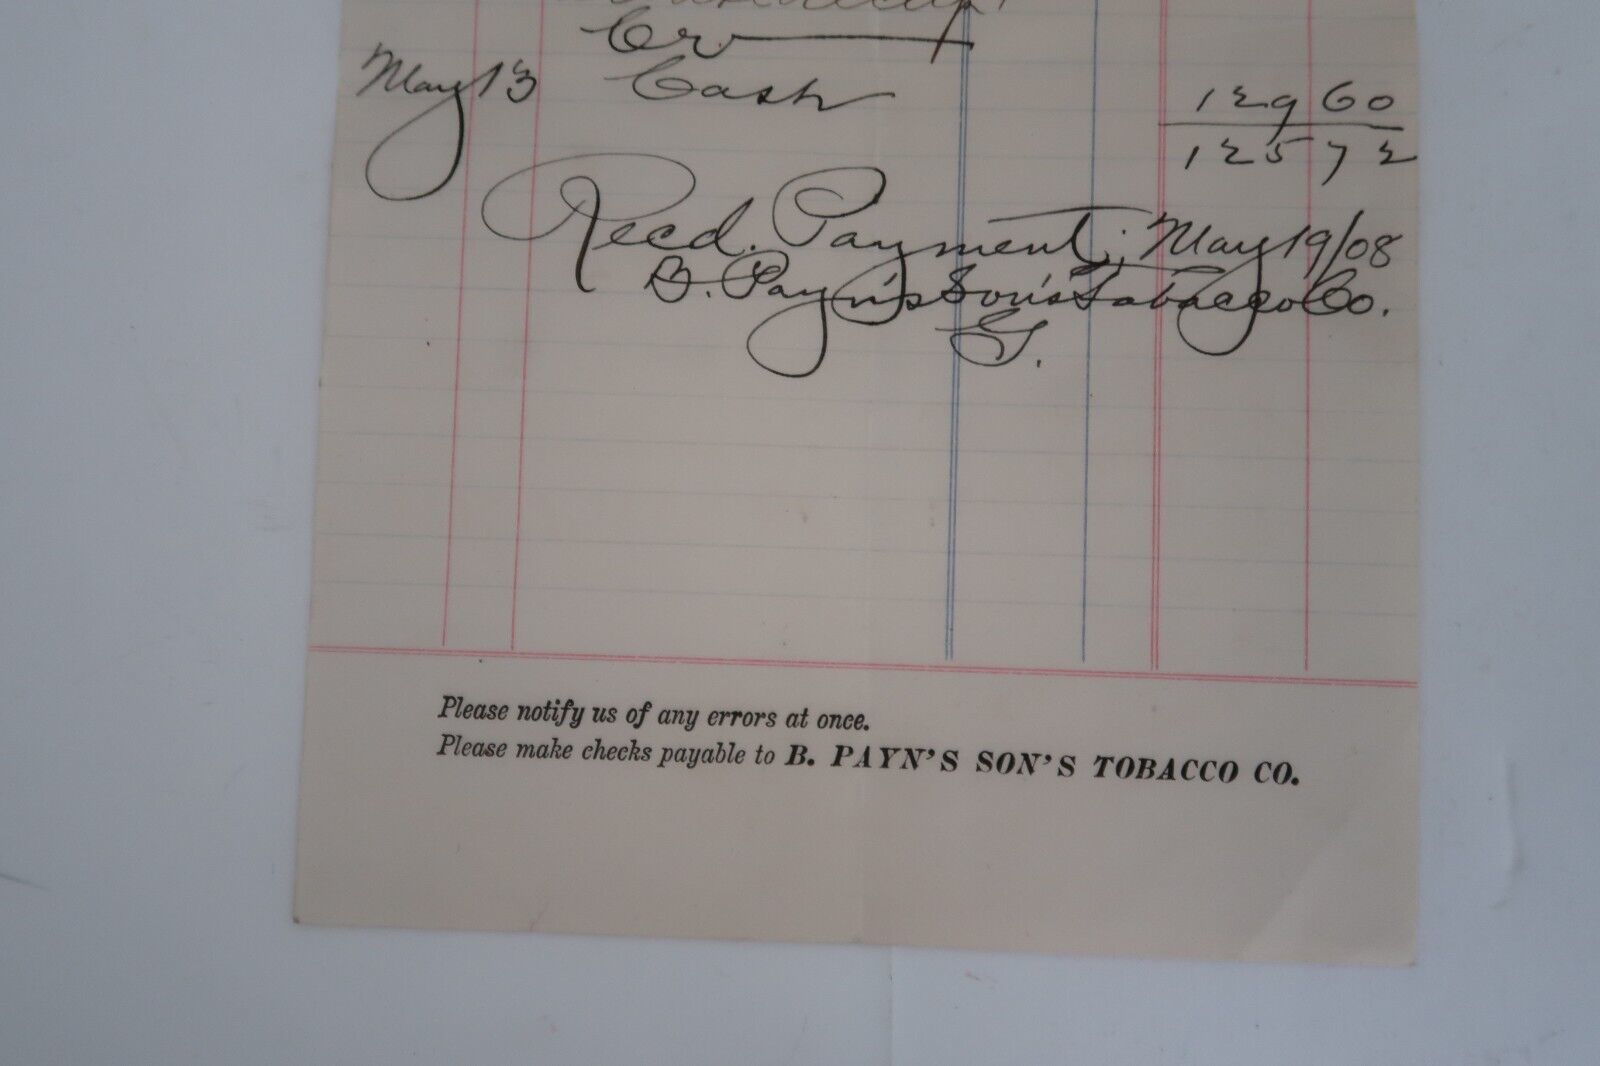 Cr
May 13 Cash 129 60
125 72
Recd. Payment, May 19/08
B. Payn's Son's Tobacco Co.
G.
Please notify us of any errors at once.
Please make checks payable to B. PAYN'S SON'S TOBACCO CO.